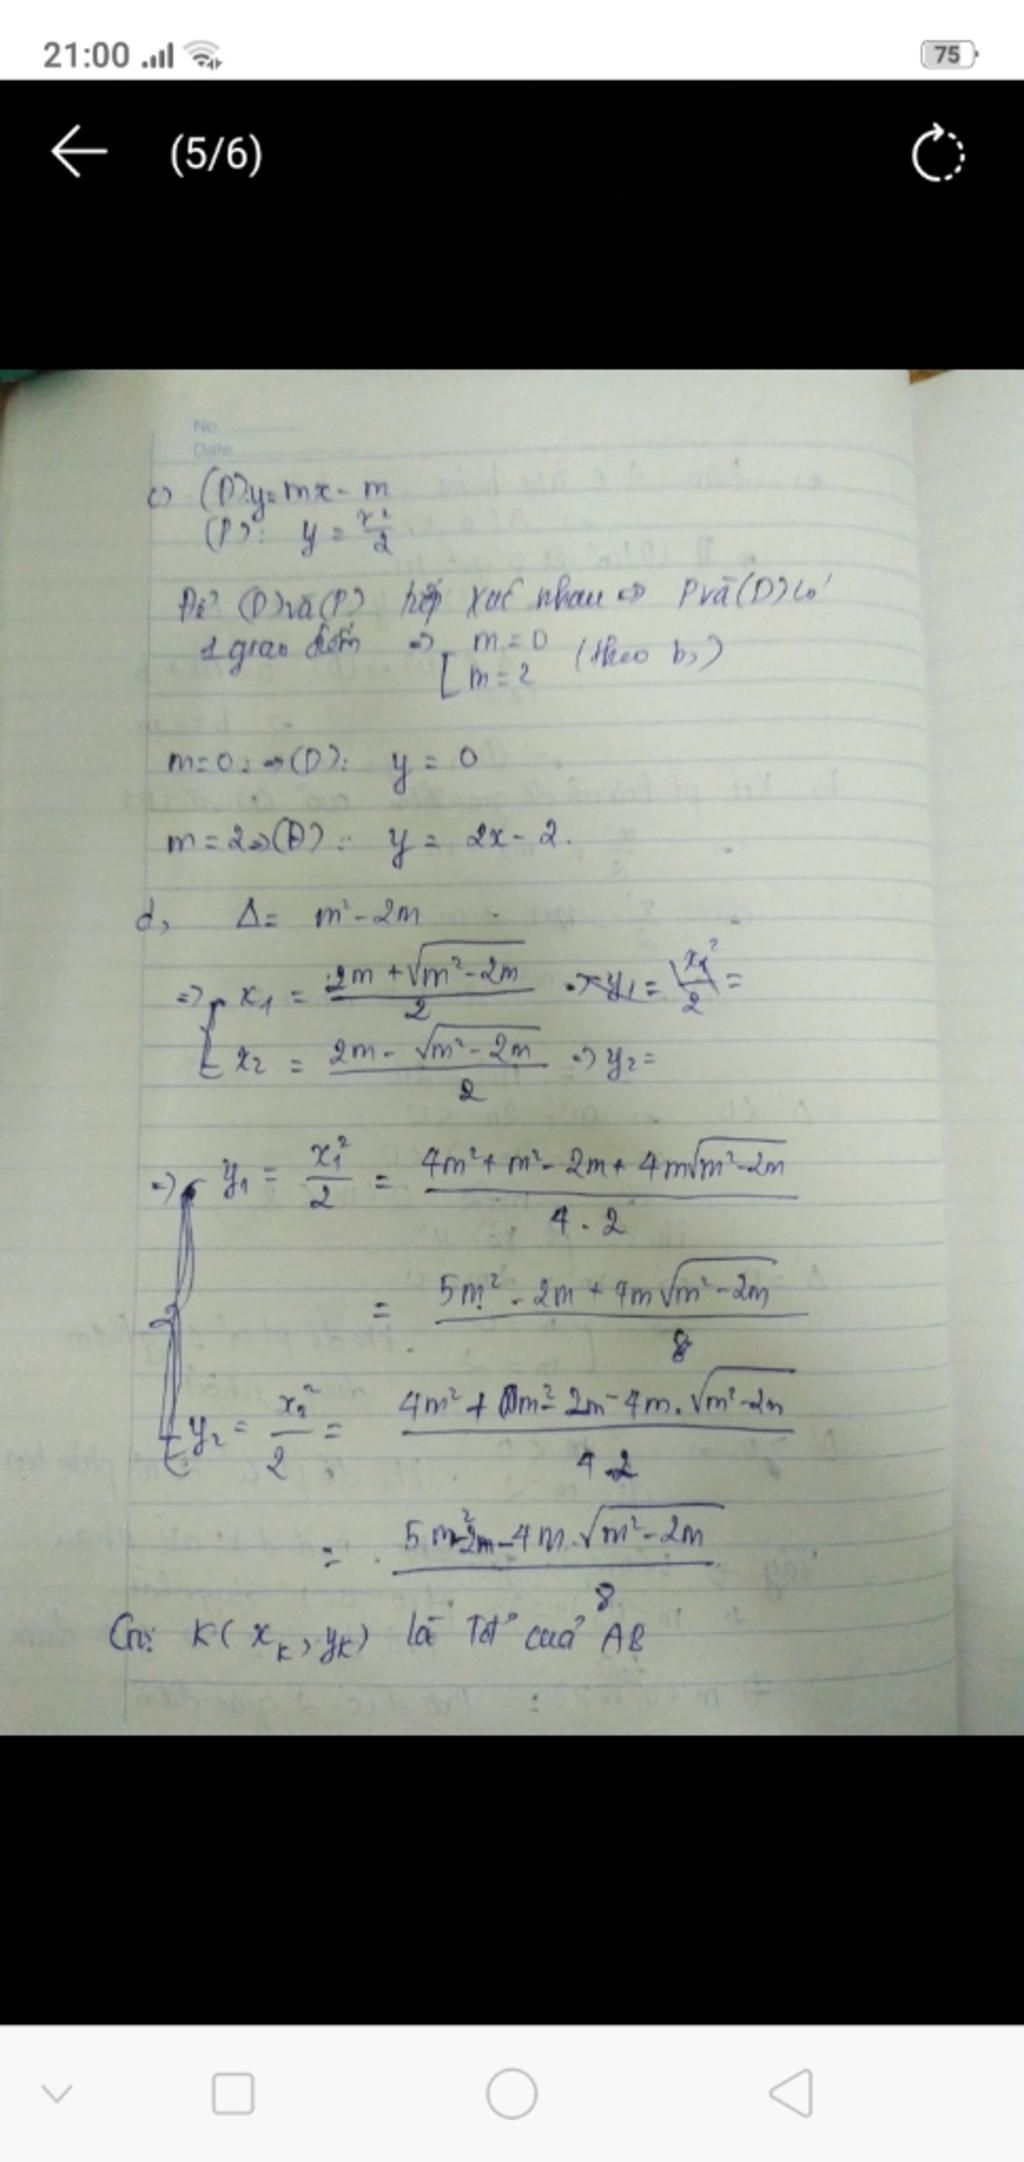 21:00
75
(5/6)
No.
Date
c) (D): y = mx - m
(P): y = x²/2
Để (D) và (P) tiếp xúc nhau => P và (D) có
1 giao điểm => [ m = 0
m = 2 (theo b,)
m = 0: => (D): y = 0
m = 2 => (D): y = 2x - 2.
d, Δ = m² - 2m
=> [ x₁ = (2m + √(m² - 2m))/2 => y₁ = x₁²/2 =
x₂ = (2m - √(m² - 2m))/2 => y₂ =
=> y₁ = x₁²/2 = (4m² + m² - 2m + 4m√(m² - 2m))/(4 . 2)
= (5m² - 2m + 4m√(m² - 2m))/8
y₂ = x₂²/2 = (4m² + m² - 2m - 4m.√(m² - 2m))/(4.2)
= (5m² - 2m - 4m.√(m² - 2m))/8
Gọi K(x_k, y_k) là Tđ của AB